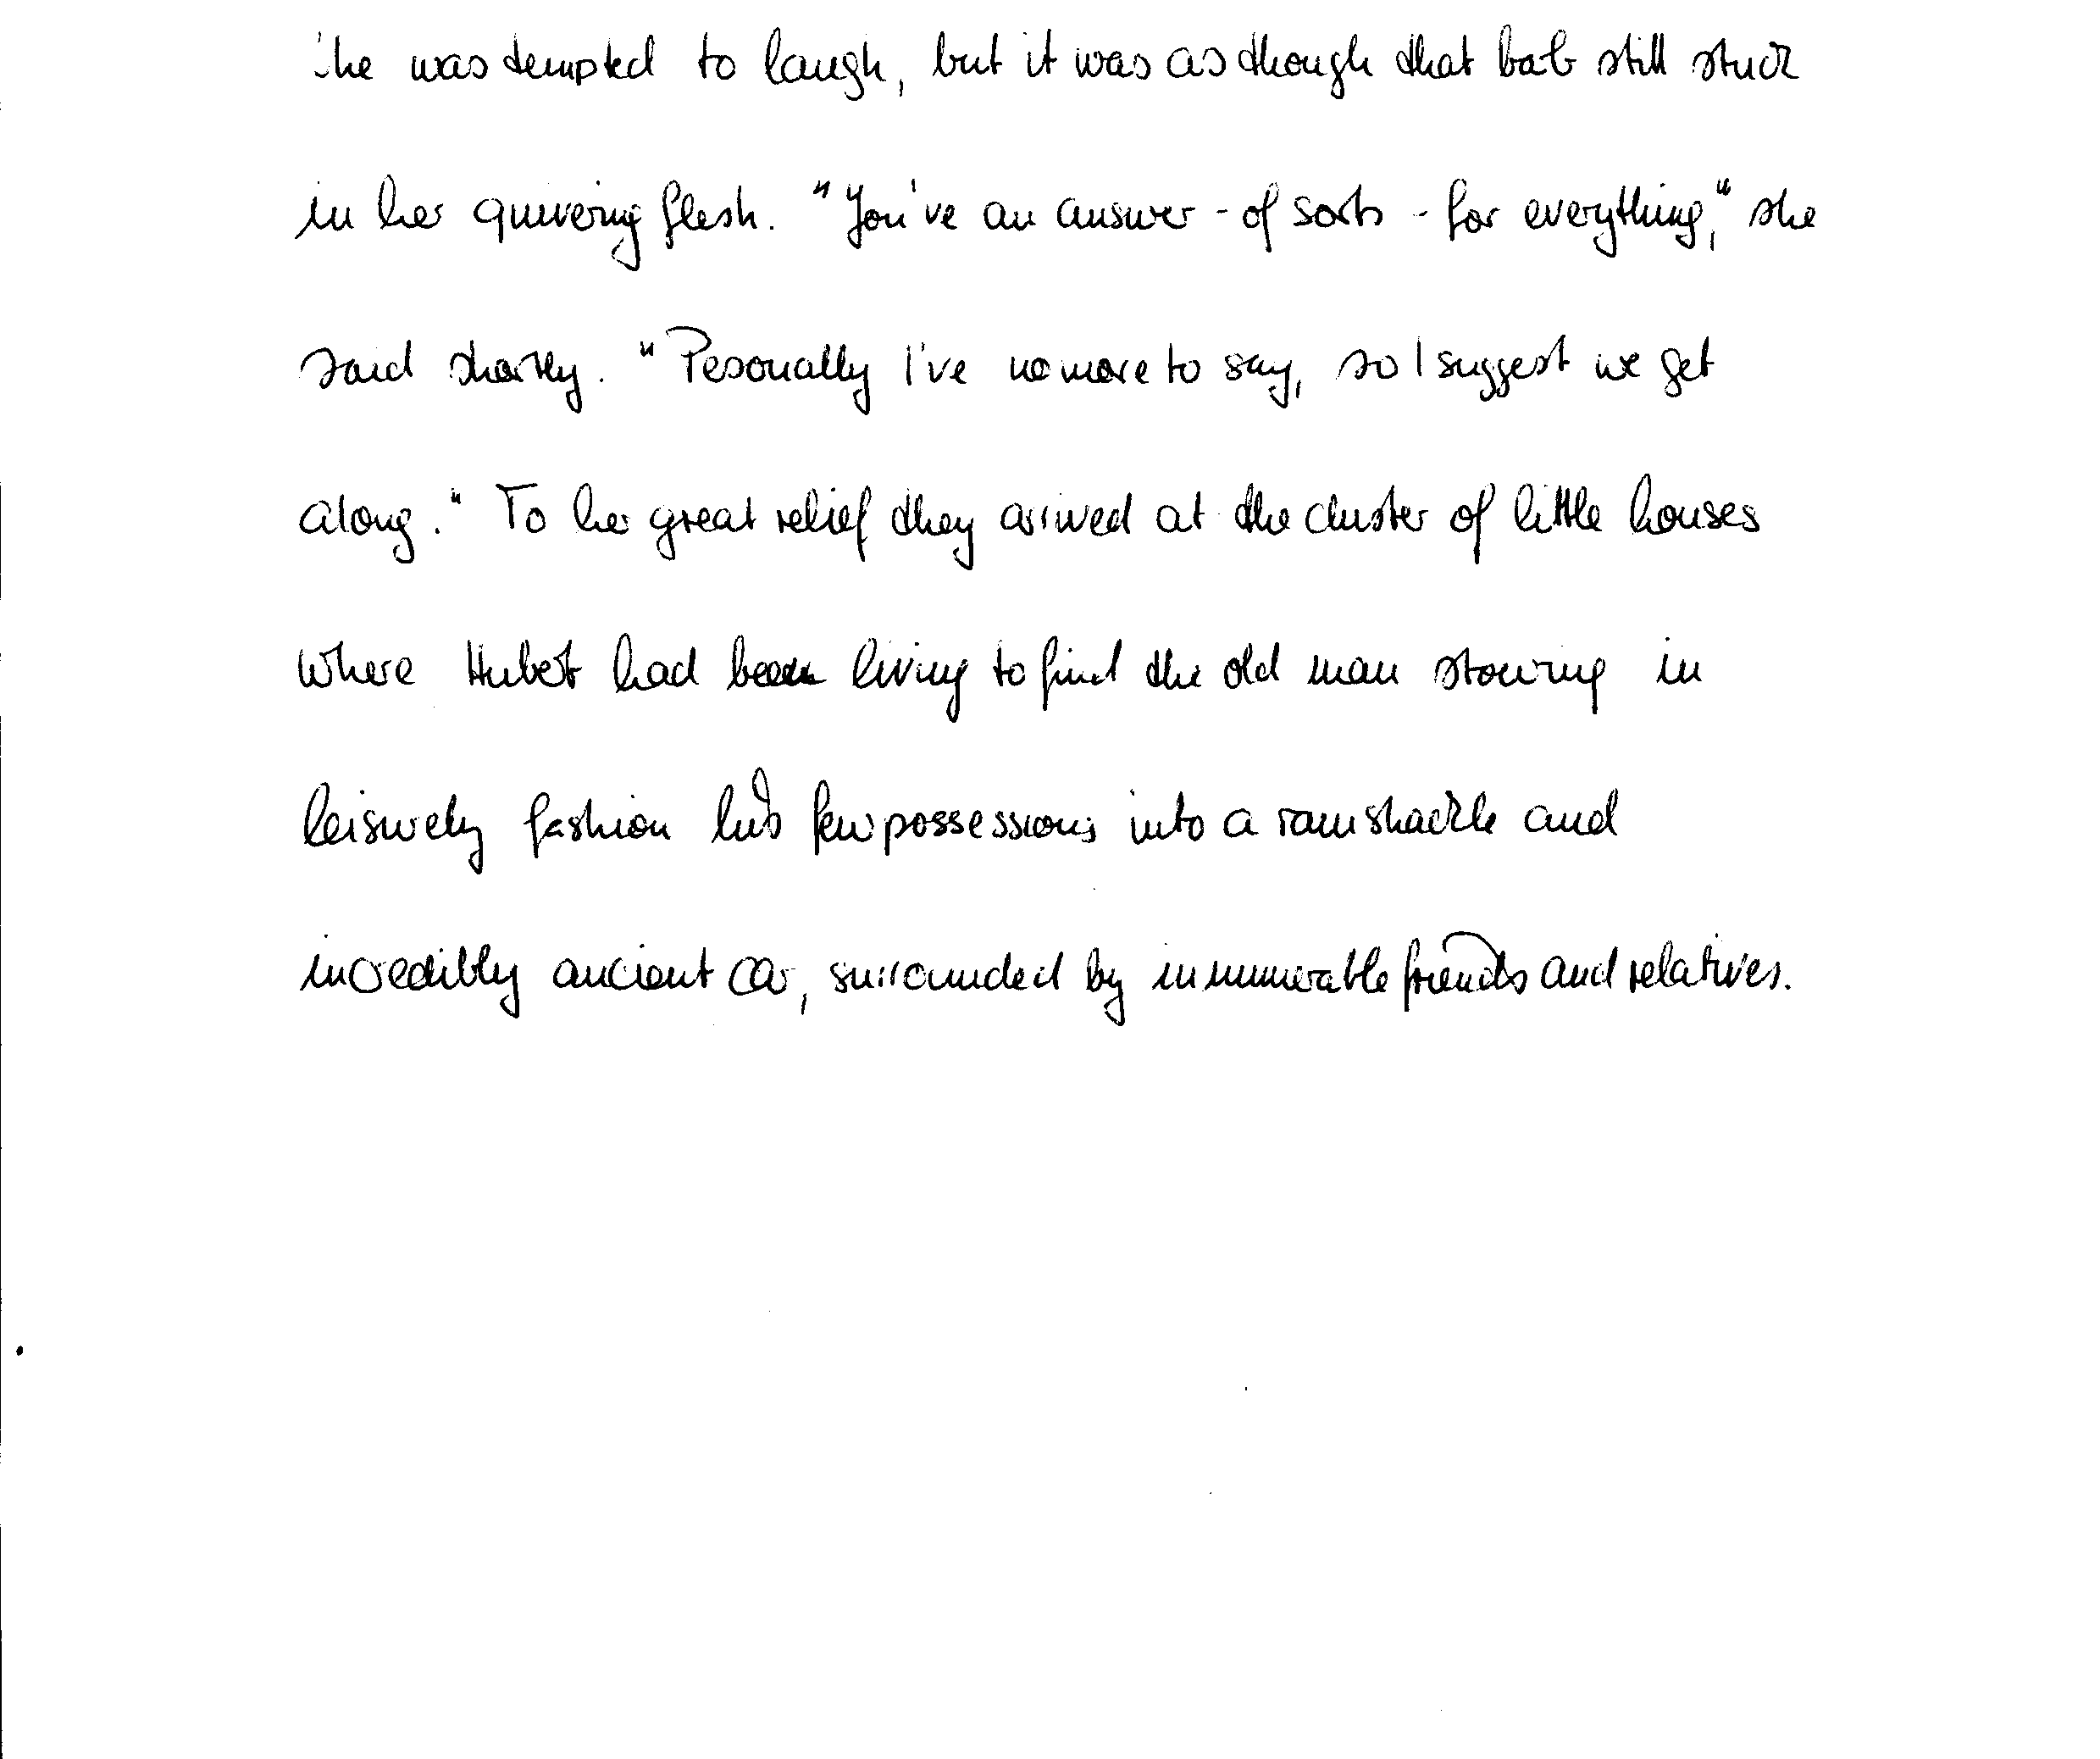 She was tempted to laugh, but it was as though that barb still stuck
in her quivering flesh. "You've an answer - of sorts - for everything," she
said shortly. "Pesonally I've no more to say, so I suggest we get
along." To her great relief they arrived at the cluster of little houses
where Hubert had been living to find the old man stowing in
leisurely fashion his few possessions into a ramshackle and
incredibly ancient car, surrounded by innumerable friends and relatives.